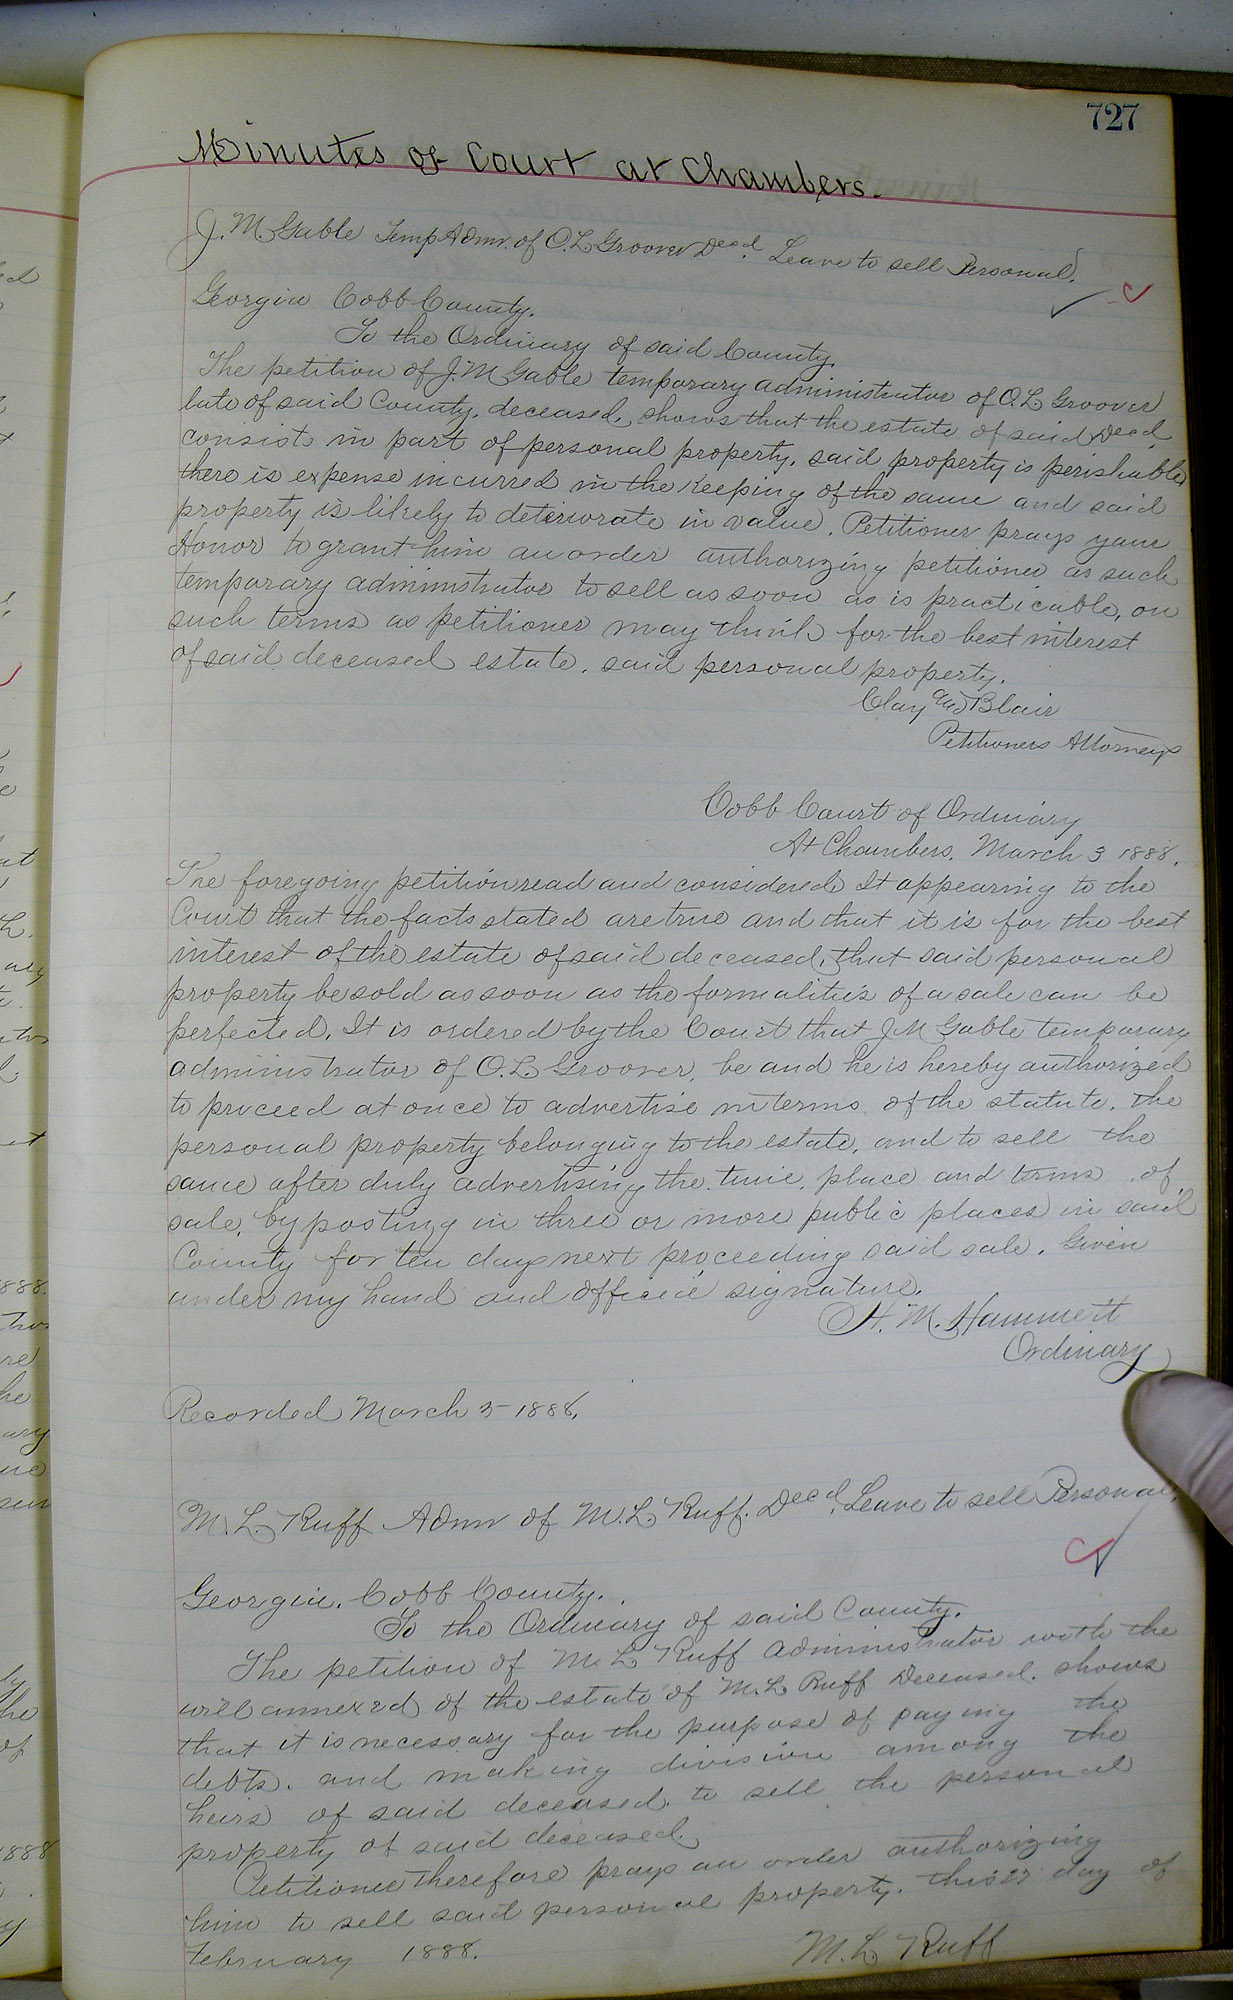 727
Minutes of Court at Chambers.
J. M. Gable Temp Admr. of O. L. Groover Decd. Leave to sell Personal.
Georgia Cobb County.
To the Ordinary of said County.
The petition of J. M Gable temporary administrator of O. L Groover
late of said County, deceased, shows that the estate of said Decd
consists in part of personal property. said property is perishable
there is expense incurred in the keeping of the same and said
property is likely to deteriorate in value. Petitioner prays your
Honor to grant him an order authorizing petitioner as such
temporary administrator to sell as soon as is practicable, on
such terms as petitioner may think for the best interest
of said deceased estate. said personal property.
Clay and Blair
Petitioners Attorneys
Cobb Court of Ordinary
At Chambers. March 3 1888.
The foregoing petition read and considered It appearing to the
Court that the facts stated are true and that it is for the best
interest of the estate of said deceased, that said personal
property be sold as soon as the formalities of a sale can be
perfected. It is ordered by the Court that J. M Gable temporary
administrator of O. L Groover, be and he is hereby authorized
to proceed at once to advertise in terms of the statute. the
personal property belonging to the estate, and to sell the
same after duly advertising the time, place and terms of
sale, by posting in three or more public places in said
County for ten days next proceeding said sale. Given
under my hand and official signature.
H. M. Hammett
Ordinary
Recorded March 5 1888.
M. L. Ruff Admr of M. L. Ruff. Decd. Leave to sell Personal.
Georgia. Cobb County.
To the Ordinary of said County.
The petition of M. L Ruff administrator with the
will annexed of the estate of M. L Ruff Deceased. shows
that it is necessary for the purpose of paying the
debts. and making division among the
heirs of said deceased to sell the personal
property of said deceased.
Petitioner therefore prays an order authorizing
him to sell said personal property. this 27 day of
February 1888.
M. L Ruff